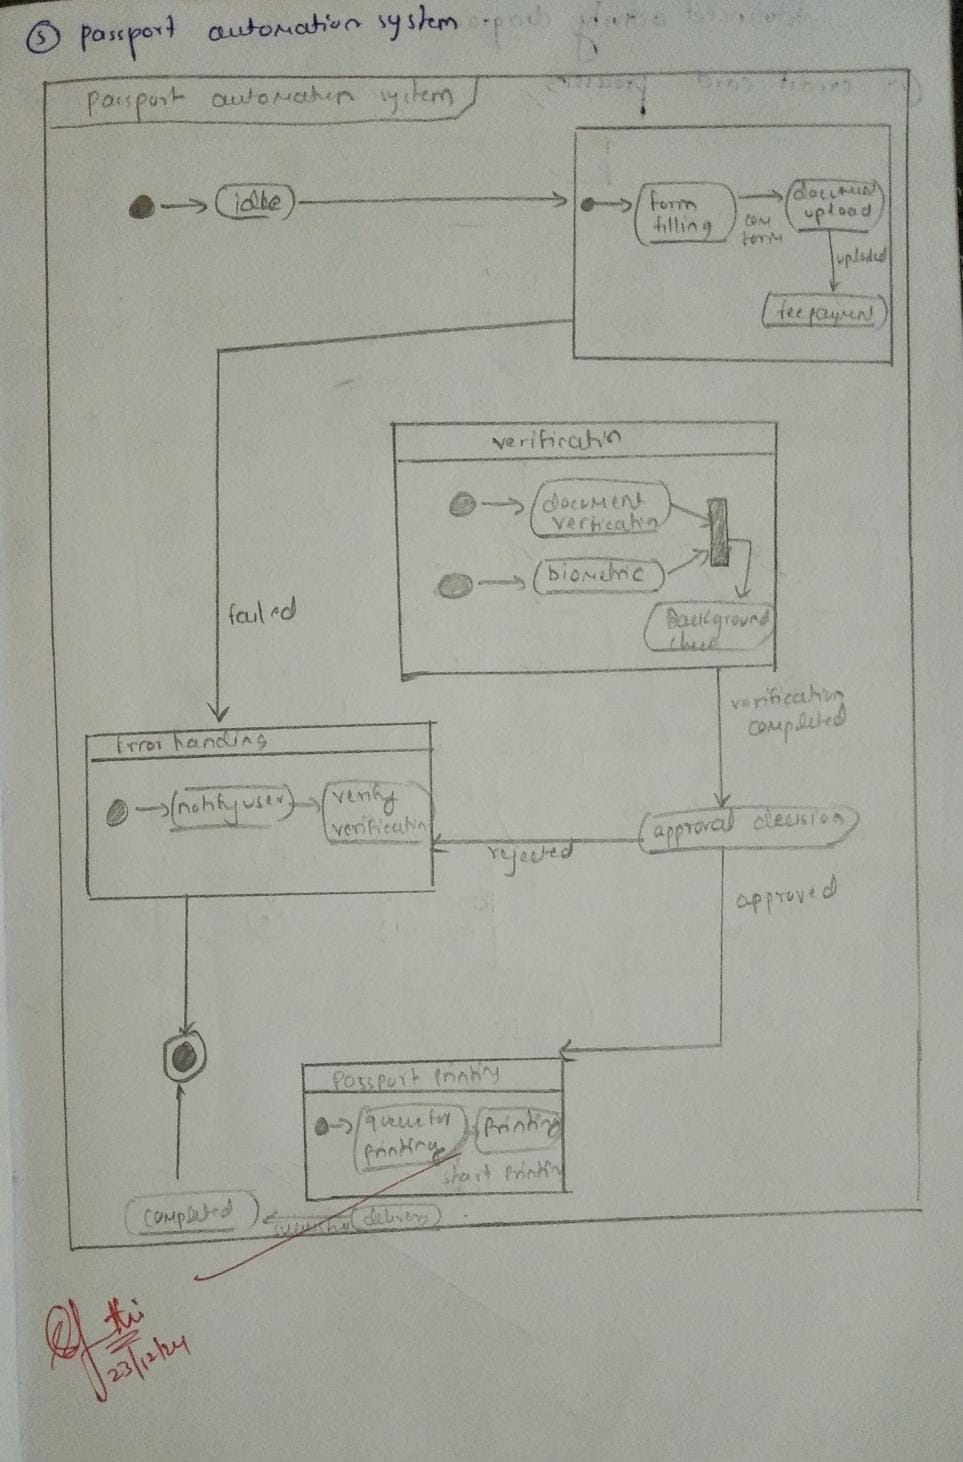 ⑤ passport automation system
passport automation system
idle
form
filling
com
form
document
upload
uploded
fee payment
verification
document
verification
biometric
Background
check
failed
verification
completed
Error handing
notify user
verify
verification
approval decision
rejected
approved
passport printing
queue for
printing
printing
start printing
completed
delivery
23/12/24